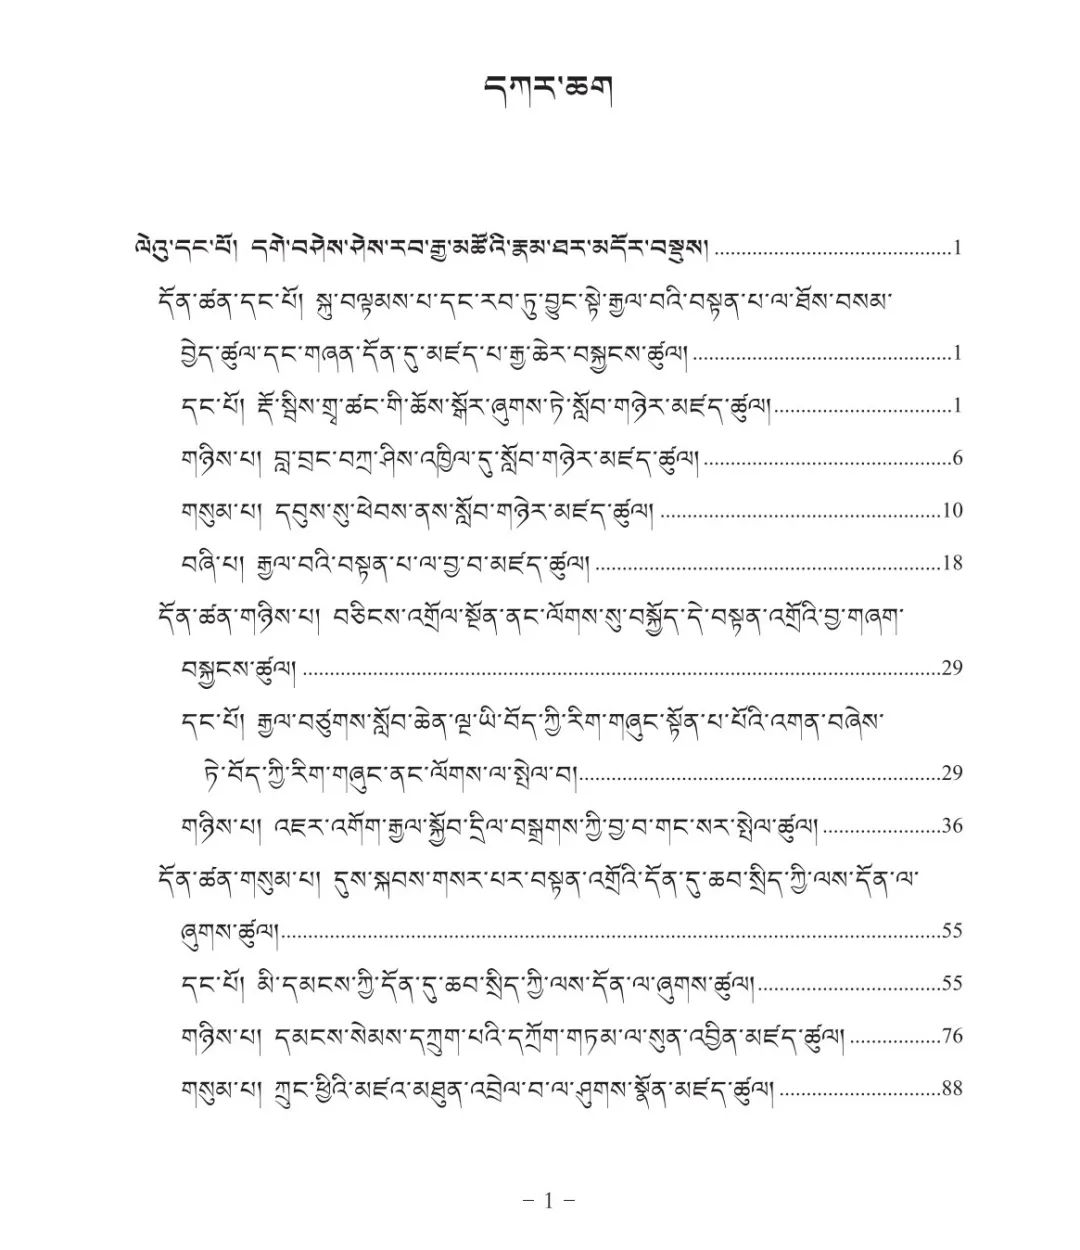 དཀར་ཆག
ལེའུ་དང་པོ། དགེ་བཤེས་ཤེས་རབ་རྒྱ་མཚོའི་རྣམ་ཐར་མདོར་བསྡུས། ........................................1
དོན་ཚན་དང་པོ། སྐུ་བལྟམས་པ་དང་རབ་ཏུ་བྱུང་སྟེ་རྒྱལ་བའི་བསྟན་པ་ལ་ཐོས་བསམ་
བྱེད་ཚུལ་དང་གཞན་དོན་དུ་མཛད་པ་རྒྱ་ཆེར་བསྐྱངས་ཚུལ། ........................................1
དང་པོ། རྡོ་སྦིས་གྲྭ་ཚང་གི་ཆོས་སྒོར་ཞུགས་ཏེ་སློབ་གཉེར་མཛད་ཚུལ། ........................................1
གཉིས་པ། བླ་བྲང་བཀྲ་ཤིས་འཁྱིལ་དུ་སློབ་གཉེར་མཛད་ཚུལ། ........................................6
གསུམ་པ། དབུས་སུ་ཕེབས་ནས་སློབ་གཉེར་མཛད་ཚུལ། ........................................10
བཞི་པ། རྒྱལ་བའི་བསྟན་པ་ལ་བྱ་བ་མཛད་ཚུལ། ........................................18
དོན་ཚན་གཉིས་པ། བཅིངས་འགྲོལ་སྔོན་ནང་ལོགས་སུ་བསྐྱོད་དེ་བསྟན་འགྲོའི་བྱ་གཞག་
བསྐྱངས་ཚུལ། ........................................29
དང་པོ། རྒྱལ་བཙུགས་སློབ་ཆེན་ལྔ་ཡི་བོད་ཀྱི་རིག་གཞུང་སྟོན་པ་པོའི་འགན་བཞེས་
ཏེ་བོད་ཀྱི་རིག་གཞུང་ནང་ལོགས་ལ་སྤེལ་བ། ........................................29
གཉིས་པ། འཇར་འགོག་རྒྱལ་སྐྱོབ་དྲིལ་བསྒྲགས་ཀྱི་བྱ་བ་གང་སར་སྤེལ་ཚུལ། ........................................36
དོན་ཚན་གསུམ་པ། དུས་སྐབས་གསར་པར་བསྟན་འགྲོའི་དོན་དུ་ཆབ་སྲིད་ཀྱི་ལས་དོན་ལ་
ཞུགས་ཚུལ། ........................................55
དང་པོ། མི་དམངས་ཀྱི་དོན་དུ་ཆབ་སྲིད་ཀྱི་ལས་དོན་ལ་ཞུགས་ཚུལ། ........................................55
གཉིས་པ། དམངས་སེམས་དཀྲུག་པའི་དཀྲོག་གཏམ་ལ་སུན་འབྱིན་མཛད་ཚུལ། ........................................76
གསུམ་པ། ཀྲུང་ཕྱིའི་མཛའ་མཐུན་འབྲེལ་བ་ལ་ཤུགས་སྣོན་མཛད་ཚུལ། ........................................88
– 1 –